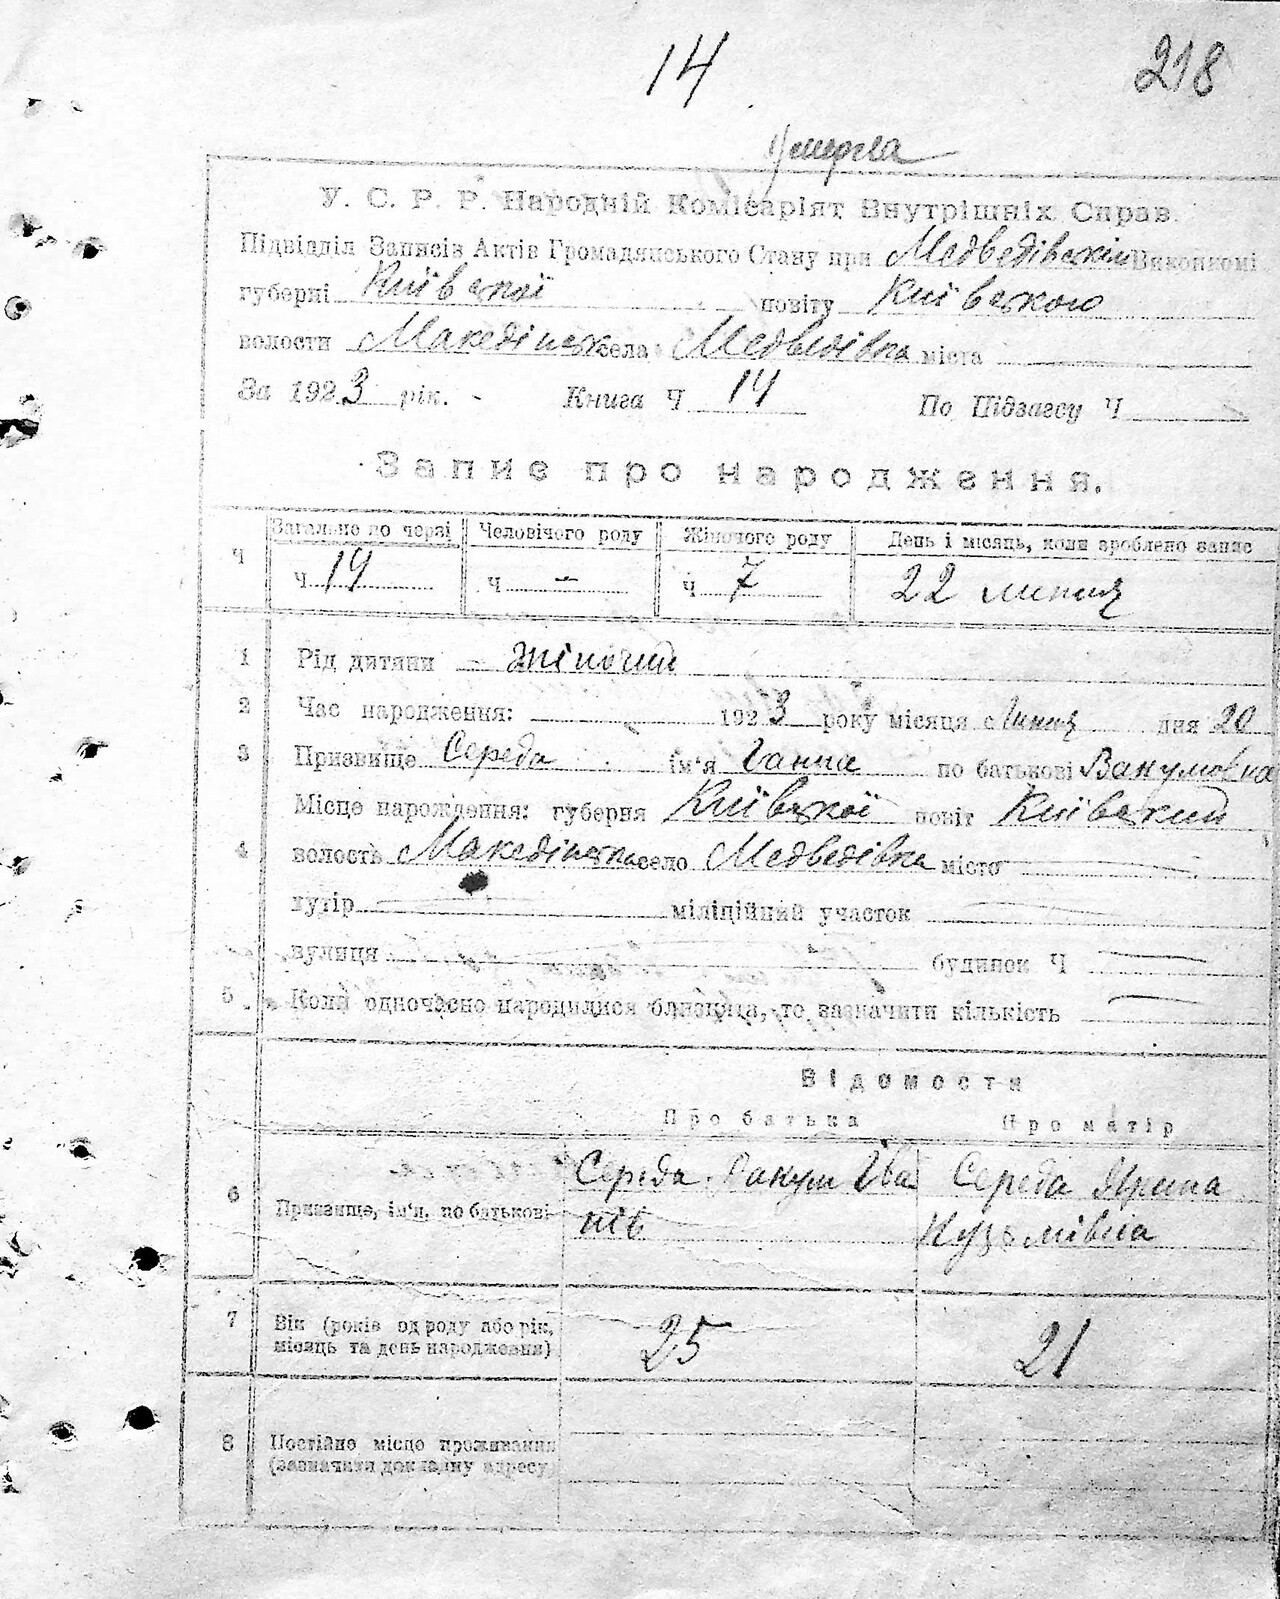 14
218
Умерла
У. С. Р. Р. Народній Комісаріят Внутрішніх Справ.
Підвідділ Записів Актів Громадянського Стану при Медведівськім Виконкомі
губерні Київської повіту Київського
волости села Медведівка міста
За 1923 рік. Книга Ч 14 По Підзагсу Ч
Запис про народження.
Ч Загальне по черзі Человічого роду Жіночого роду День і місяць, коли зроблено запис
ч 14 ч — ч 7 22 липця
1 Рід дитяни жіночий
2 Час народження: 1923 року місяця липця дня 20
3 Призвище Середа ім'я Ганна по батькові Вакумовна
Місце народження: губерня Київської повіт Київский
4 волость село Медведівка місто
хутір міліційний участок
вулиця будинок Ч
5 Коли одночасно народилися близнята, то зазначити кількість
Відомости
Про батька Про матір
6 Призвище, ім'я, по батькові Середа Вакум Іва
нів Середа Ярина
Кузьмівна
7 Вік (років од роду або рік, місяць та день народження) 25 21
8 Постійно місце проживання
(зазначити докладну адресу)